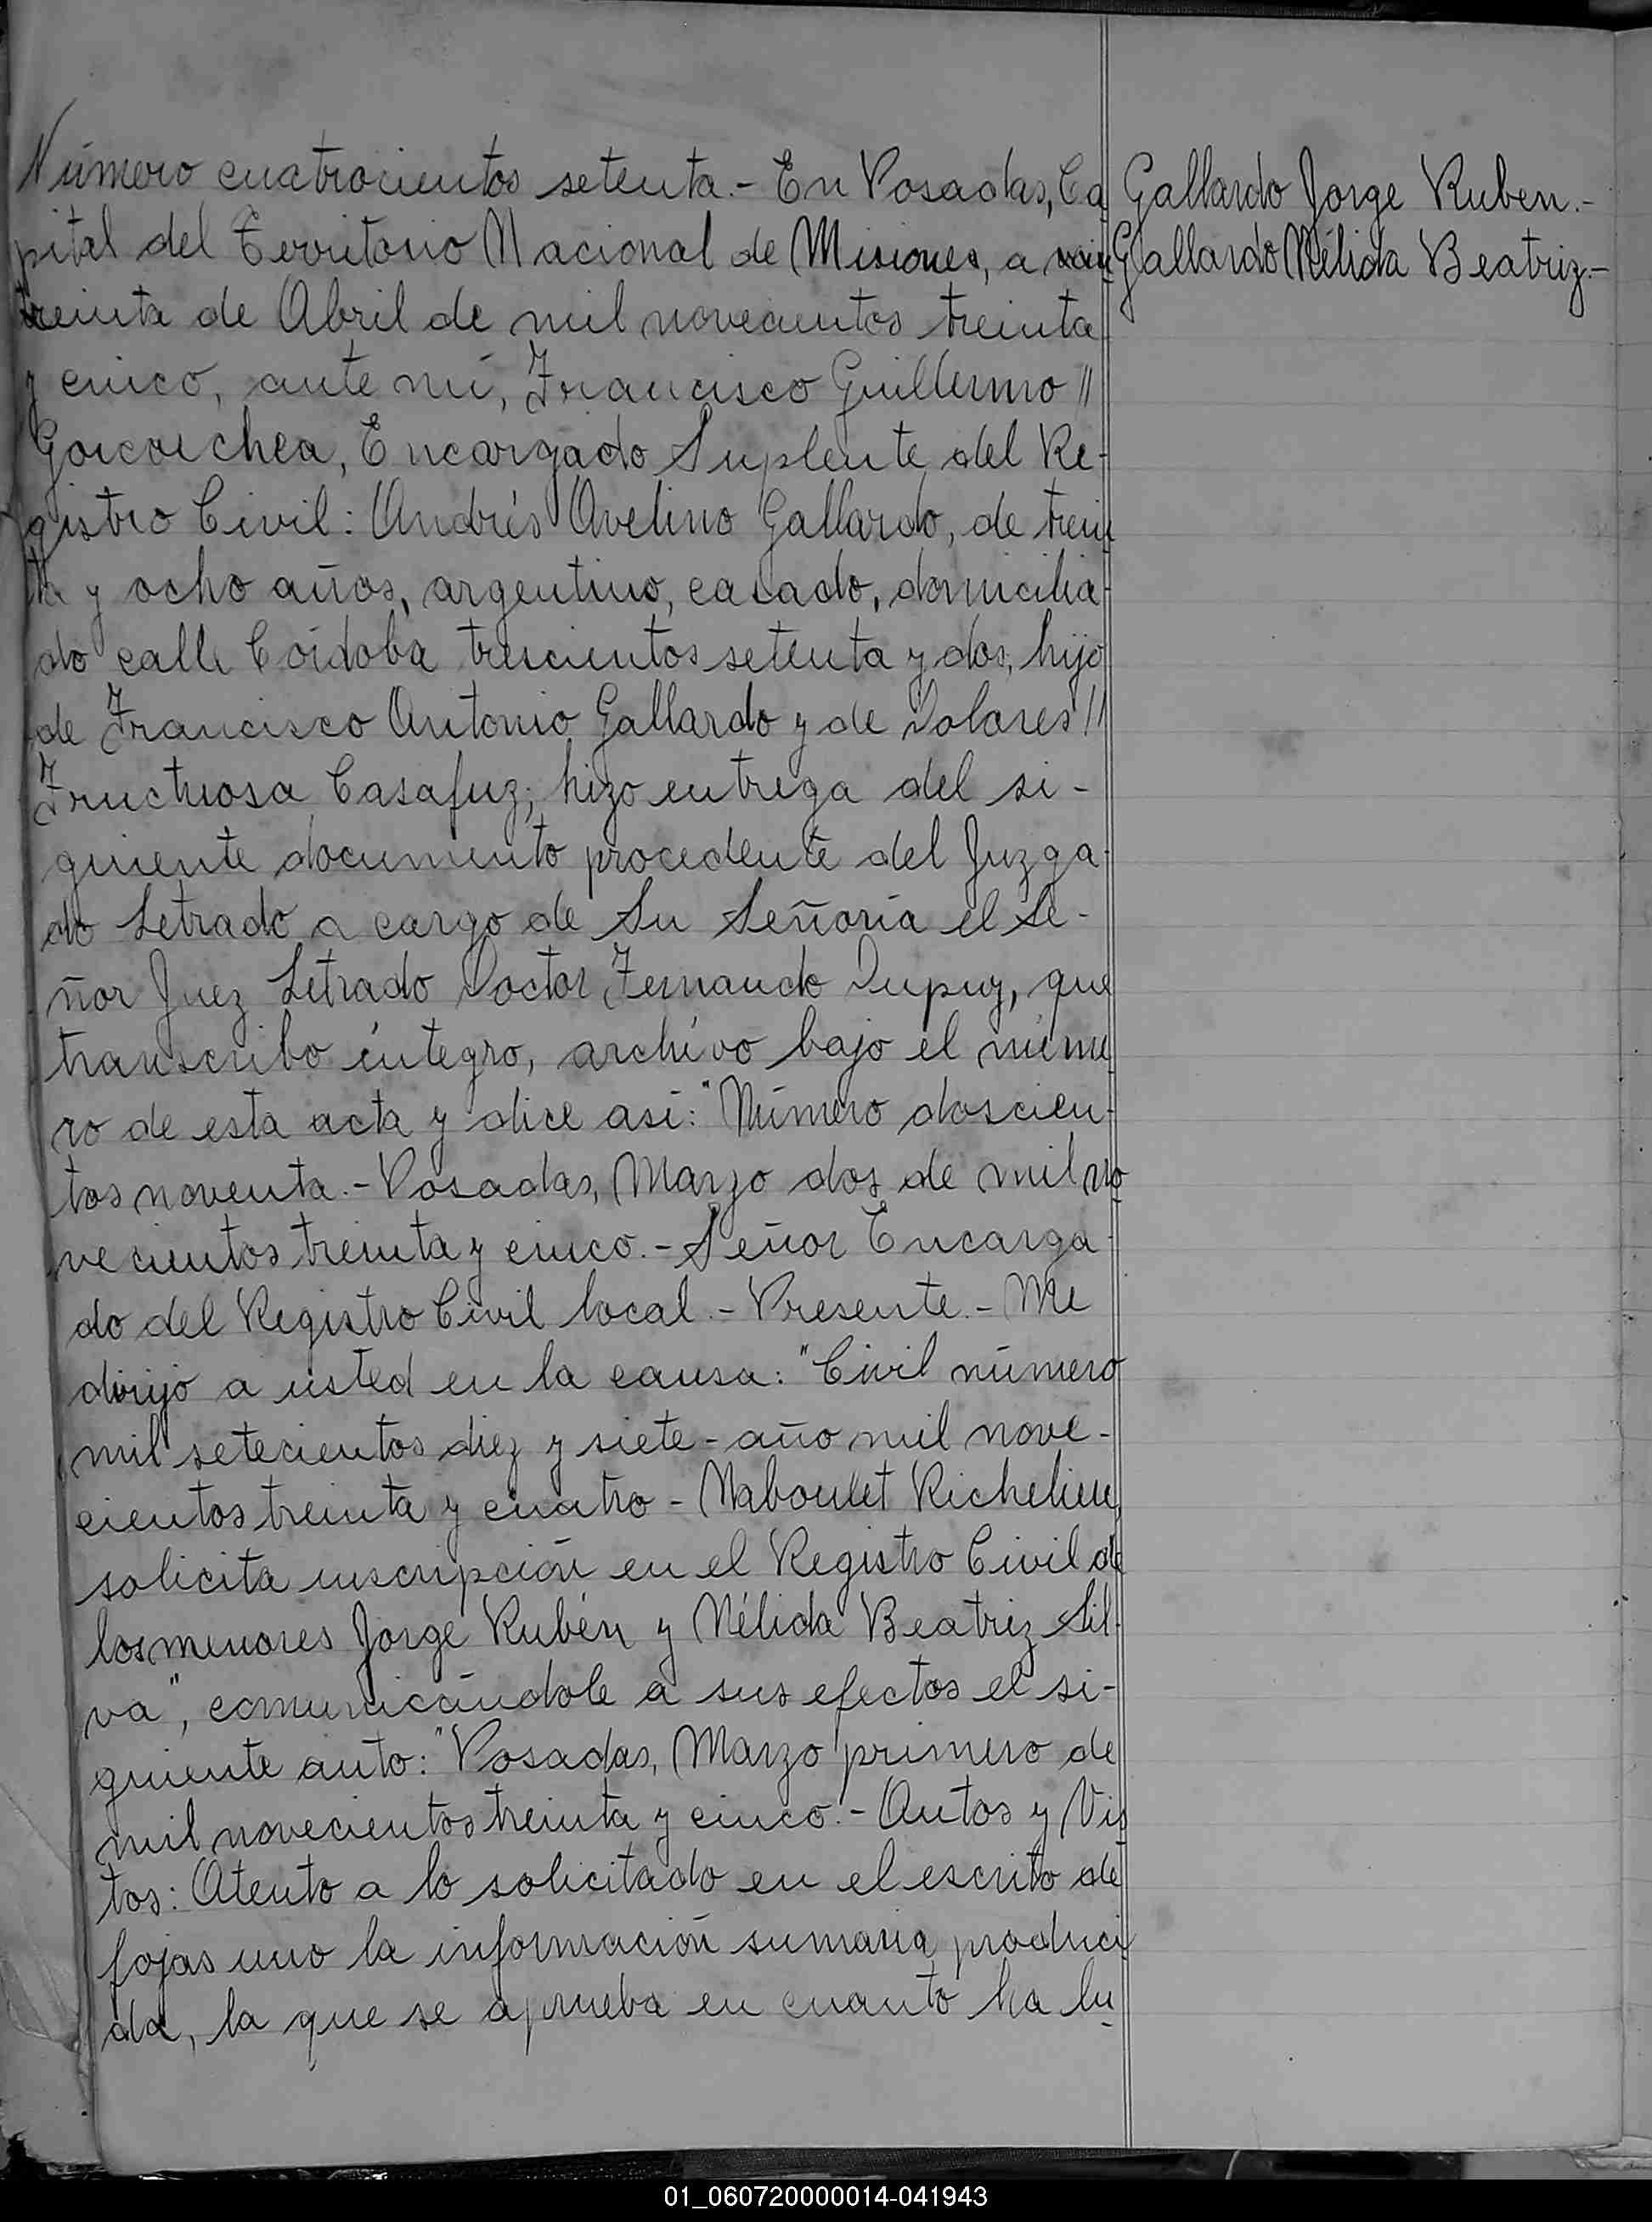 Número cuatrocientos setenta.- En Posadas, Ca
pital del Territorio Nacional de Misiones, a
treinta de Abril de mil novecientos treinta
y cinco, ante mí, Francisco Guillermo //
Goicoechea, Encargado Suplente del Re-
gistro Civil: Andrés Avelino Gallardo, de trein
ta y ocho años, argentino, casado, domicilia-
do calle Córdoba trescientos setenta y dos, hijo
de Francisco Antonio Gallardo y de Dolores //
Fructuosa Casafuz; hizo entrega del si-
guiente documento procedente del Juzga-
do Letrado a cargo de Su Señoría el Se-
ñor Juez Letrado Doctor Fernando Dupuy, que
transcribo íntegro, archivo bajo el núme
ro de esta acta y dice así: "Número doscien-
tos noventa.- Posadas, Marzo dos de mil no
vecientos treinta y cinco.- Señor Encarga-
do del Registro Civil local.- Presente.- Me
dirijo a usted en la causa: "Civil número
mil setecientos diez y siete - año mil nove-
cientos treinta y cuatro - Naboulet Richelieu,
solicita inscripción en el Registro Civil de
los menores Jorge Rubén y Nélida Beatriz Sil-
va", comunicándole a sus efectos el si-
guiente auto: "Posadas, Marzo primero de
mil novecientos treinta y cinco.- Autos y Vis
tos: Atento a lo solicitado en el escrito de
fojas uno la información sumaria produci
da, la que se aprueba en cuanto ha lu-
Gallardo Jorge Ruben.-
Gallardo Nélida Beatriz.-
01_060720000014-041943